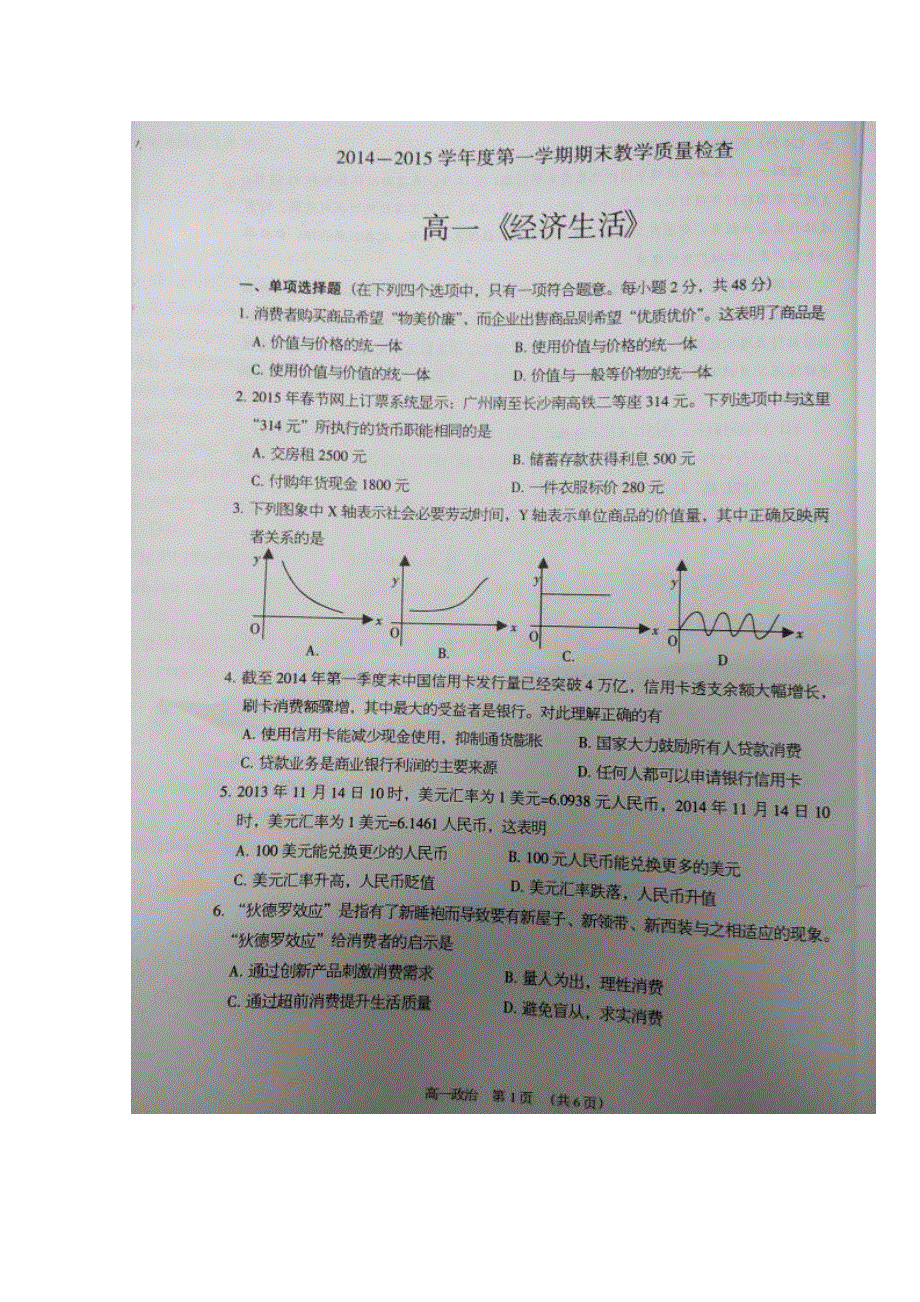 2014－2015 学年度第一学期期末教学质量检查
高一《经济生活》
一、单项选择题（在下列四个选项中，只有一项符合题意。每小题 2 分，共 48 分）
1. 消费者购买商品希望“物美价廉”、而企业出售商品则希望“优质优价”。这表明了商品是
A. 价值与价格的统一体 B. 使用价值与价格的统一体
C. 使用价值与价值的统一体 D. 价值与一般等价物的统一体
2. 2015 年春节网上订票系统显示：广州南至长沙南高铁二等座 314 元。下列选项中与这里
“314 元”所执行的货币职能相同的是
A. 交房租 2500 元 B. 储蓄存款获得利息 500 元
C. 付购年货现金 1800 元 D. 一件衣服标价 280 元
3. 下列图象中 X 轴表示社会必要劳动时间，Y 轴表示单位商品的价值量，其中正确反映两
者关系的是
y y y y
O x O x O x O x
A. B. C. D
4. 截至 2014 年第一季度末中国信用卡发行量已经突破 4 万亿，信用卡透支余额大幅增长，
刷卡消费额骤增，其中最大的受益者是银行。对此理解正确的有
A. 使用信用卡能减少现金使用，抑制通货膨胀 B. 国家大力鼓励所有人贷款消费
C. 贷款业务是商业银行利润的主要来源 D. 任何人都可以申请银行信用卡
5. 2013 年 11 月 14 日 10 时，美元汇率为 1 美元=6.0938 元人民币，2014 年 11 月 14 日 10
时，美元汇率为 1 美元=6.1461 人民币，这表明
A. 100 美元能兑换更少的人民币 B. 100 元人民币能兑换更多的美元
C. 美元汇率升高，人民币贬值 D. 美元汇率跌落，人民币升值
6. “狄德罗效应”是指有了新睡袍而导致要有新屋子、新领带、新西装与之相适应的现象。
“狄德罗效应”给消费者的启示是
A. 通过创新产品刺激消费需求 B. 量入为出，理性消费
C. 通过超前消费提升生活质量 D. 避免盲从，求实消费
高一政治 第 1 页 （共 6 页）